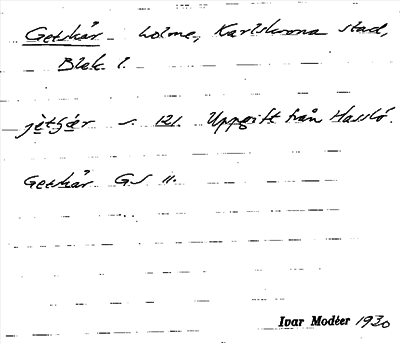 Getskär holme, Karlskrona stad,
Blek. l.
s. 121. Uppgift från Hasslö.
Getskär GS 11.
Ivar Modéer 1930